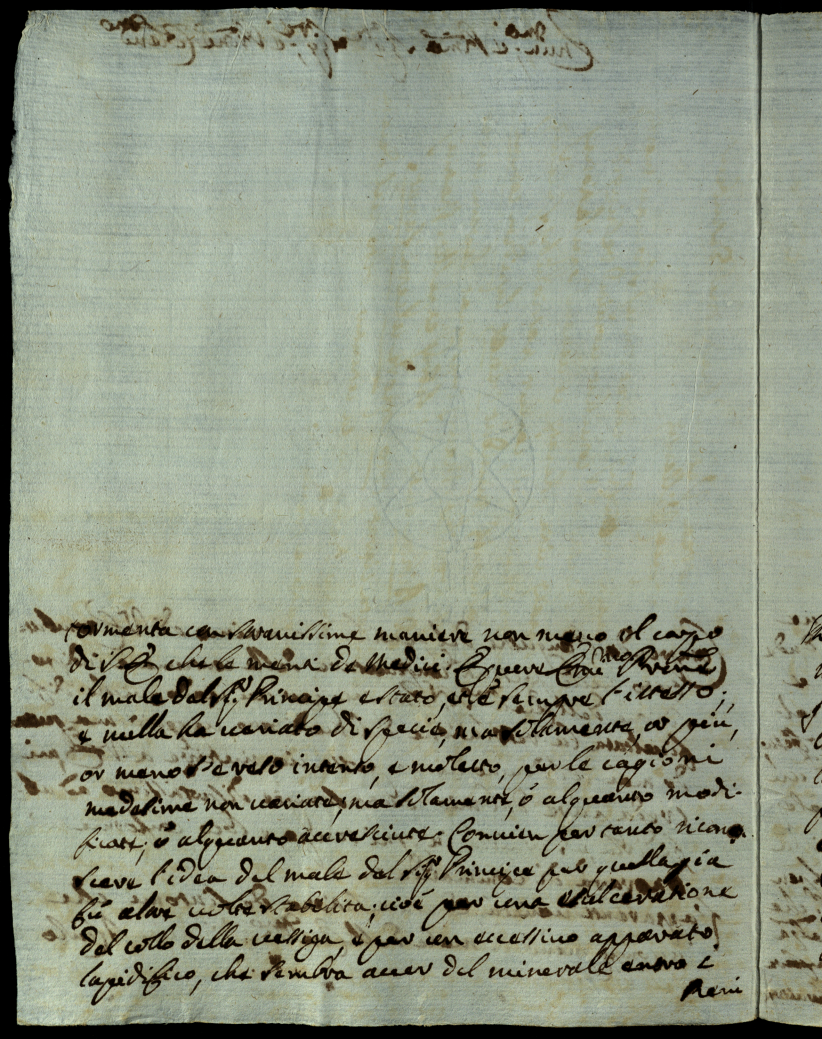 tormenta con stranissime maniere non meno il corpo
di S. E. che le menti de Medici.
il male del Sig.r Principe è stato, et è sempre l'istesso,
e nulla ha variato di specie, ma solamente, or più,
or meno s'è reso intenso, e molesto, per le cagioni
medesime non variate, ma solamente, ò alquanto modi-
ficate, ò alquanto accresciute. Convien per tanto ricono
scere l'idea del male del Sig.r Principe per quella già
fù altre volte stabilita; cioè per una esulceratione
del collo della vessiga, e per un eccessivo apparato
lapidifico, che sembra aver del minerale entro i
Reni